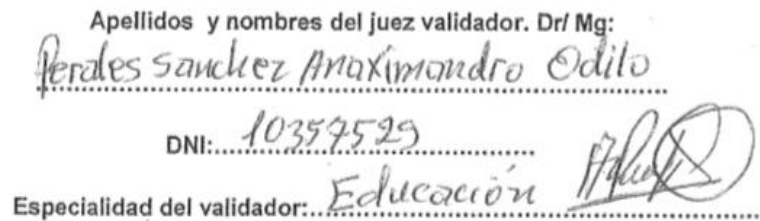 Apellidos y nombres del juez validador. Dr/ Mg:
Perales Sanchez Anaximandro Odilo
DNI: 10357529
Especialidad del validador: Educación